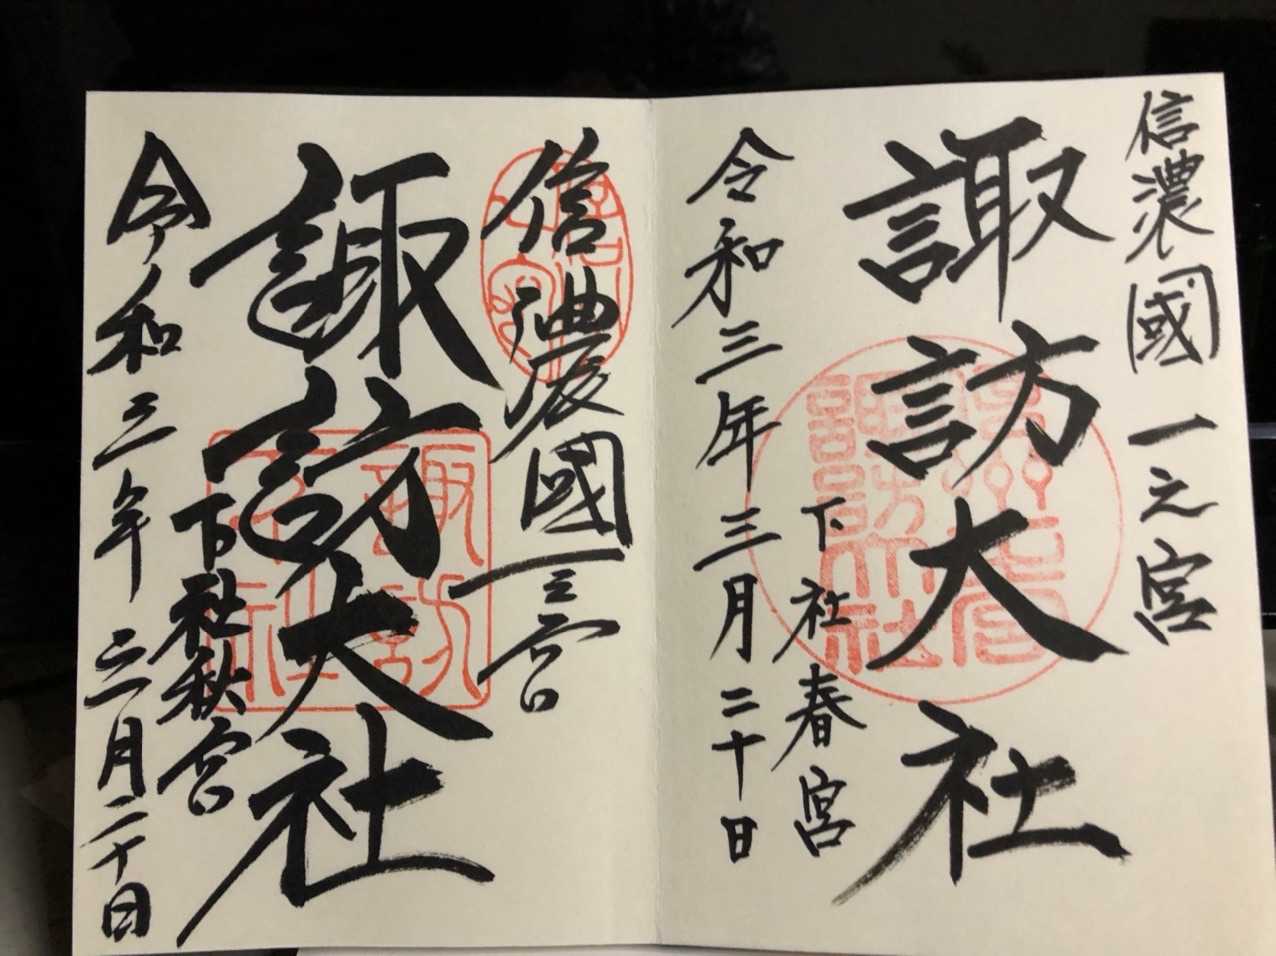 信濃國一之宮
諏訪大社
下社春宮
令和三年三月二十日
信濃國一之宮
諏訪大社
下社秋宮
令和三年三月二十日